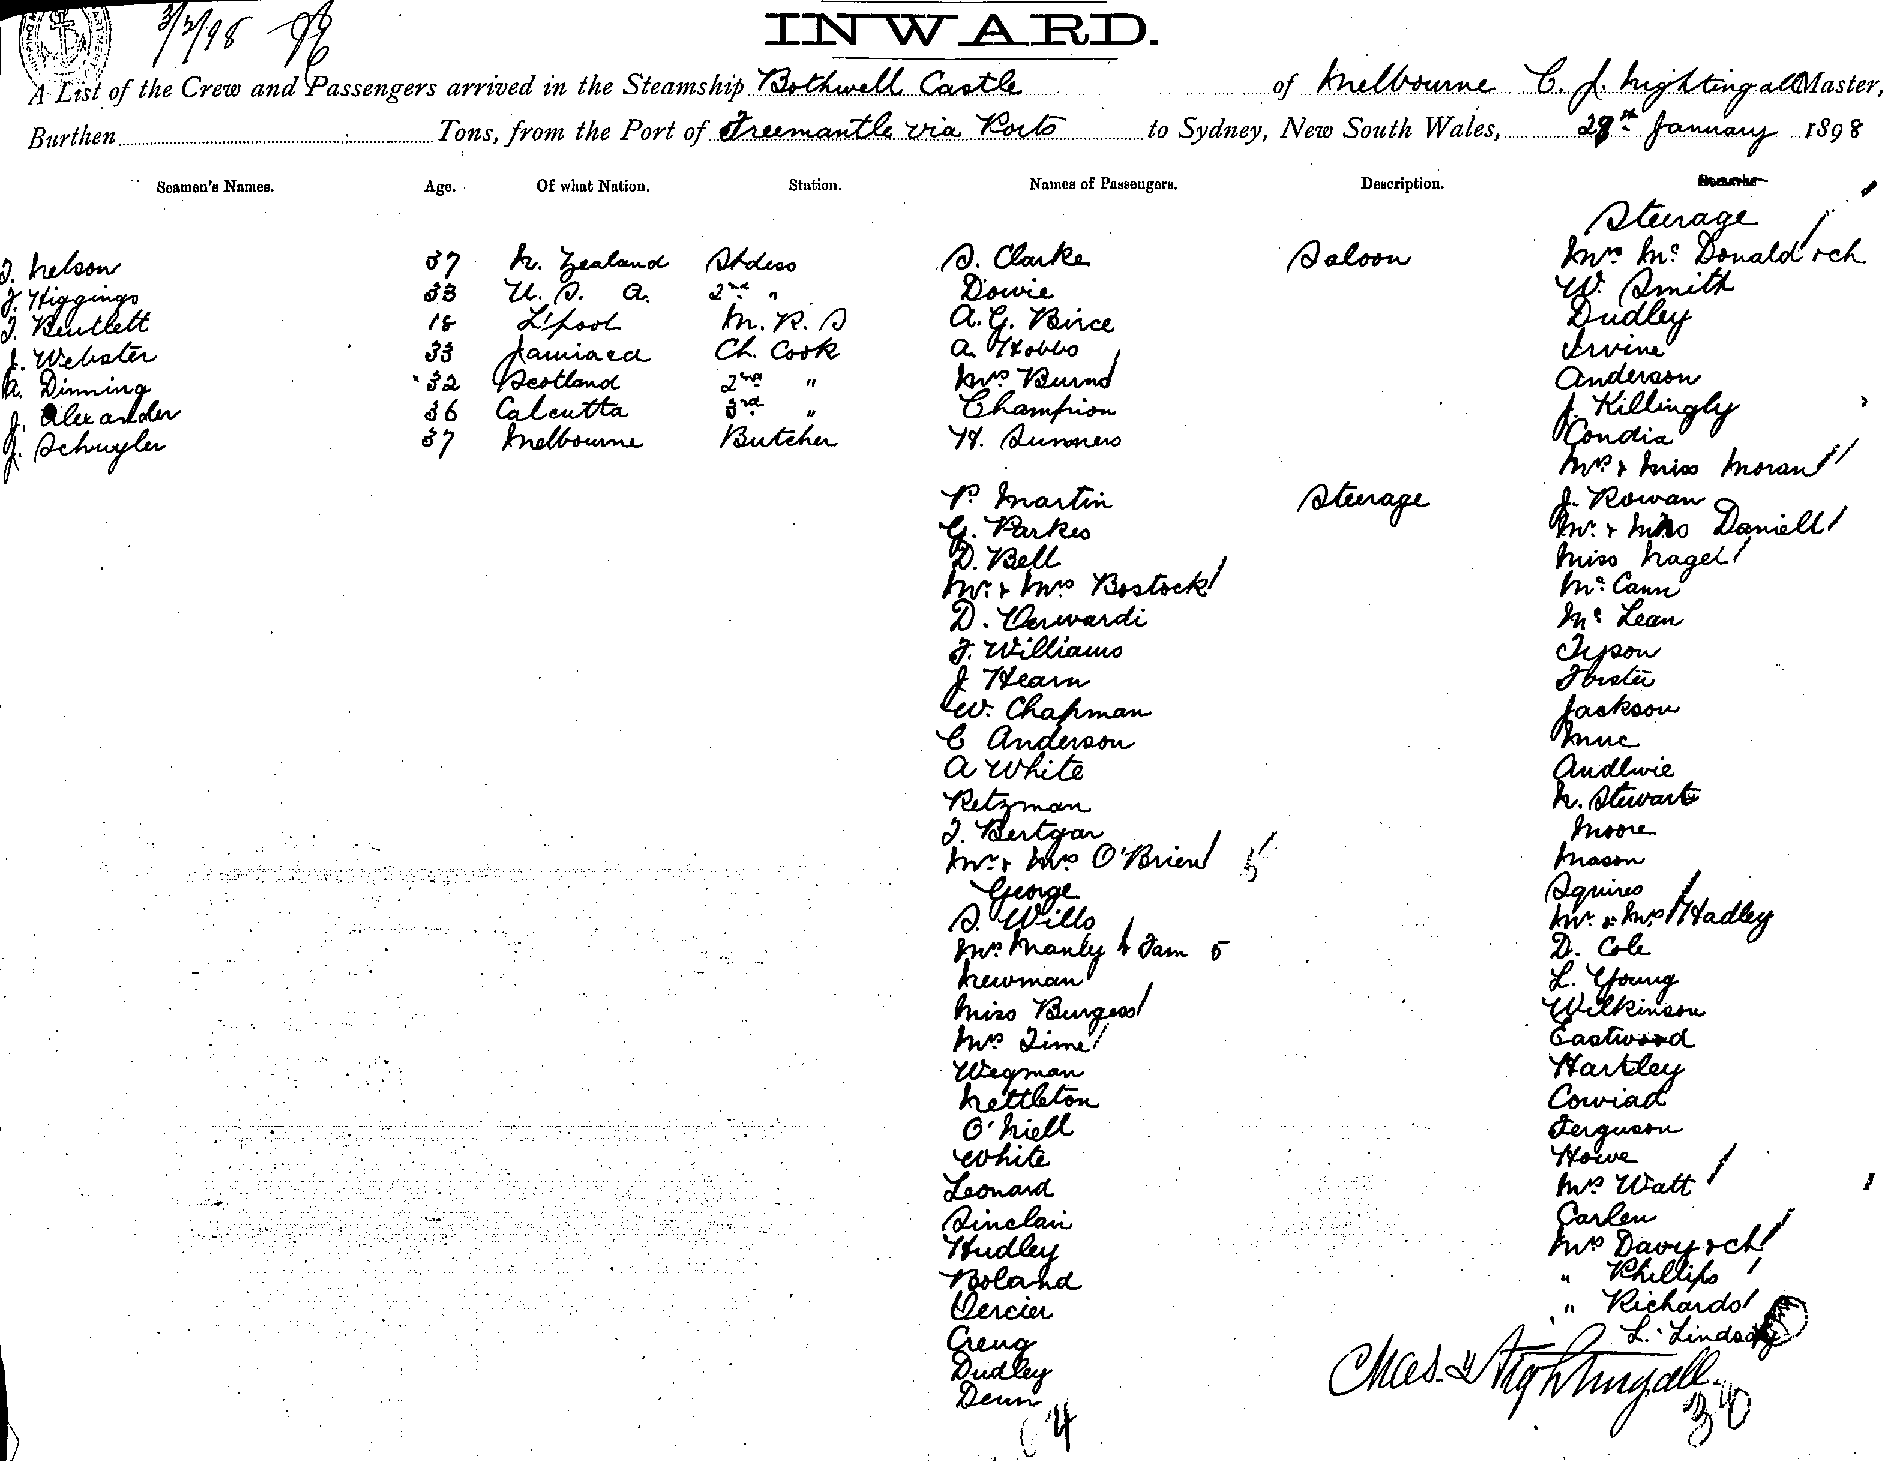 3/2/98
INWARD.
A List of the Crew and Passengers arrived in the Steamship Bothwell Castle of Melbourne C. J. Nightingall Master,
Burthen Tons, from the Port of Freemantle via Ports to Sydney, New South Wales, 28th January 1898
Seamen's Names. Age. Of what Nation. Station. Names of Passengers. Description. Remarks
Steerage
J. Nelson 37 N. Zealand Stdess S. Clarke Saloon Mrs Mc Donald & ch
J. Higgings 33 U. S. A. 2nd " Dowie W. Smith
J. Bentlett 18 L'pool M. R. S A. G. Birce Dudley
J. Webster 33 Jamiaca Ch. Cook A. Hobbs Irvine
A. Dinning 32 Scotland 2nd " Mrs Burnd Anderson
J. Alexander 36 Calcutta 3rd " Champion J. Killingly
J. Schuyler 37 Melbourne Butcher H. Sumners Condia
Mrs & Miss Moran
P. Martin Steerage J. Rowan
G. Parkes Mr. & Mrs Daniell
D. Bell Miss Nagel
Mr. & Mrs Bostock Mc Cann
D. Verwardi Mc Lean
F. Williams Tyson
J Hearn Forster
W. Chapman Jackson
C Anderson
A White Audlwie
Retzman N. Stewart
J. Bertgar Moore
Mr & Mrs O'Brien 5 Mason
George Squires
S. Wills Mr & Mrs Hadley
Mrs Manly & Fam 5 D. Cole
Newman L. Young
Miss Burgess Wilkinson
Mrs Time Eastwood
Wegman Hartley
Nettleton Conrad
O'Niell Ferguson
White Howe
Leonard Mrs Watt
Sinclair Carlen
Hudley Mrs Davy & ch
Boland " Phillips
Vercier " Richards
Creug L. Lindsay
Dudley Chas. J Nightingall.
Denn 30
4